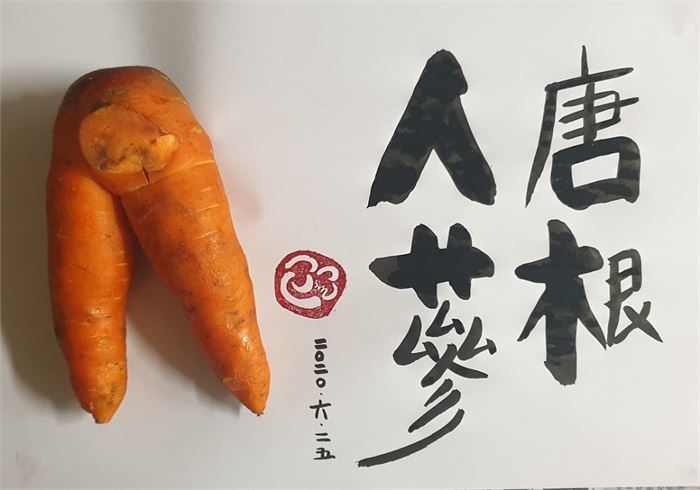 唐根
人蔘
二〇二〇.六.二五